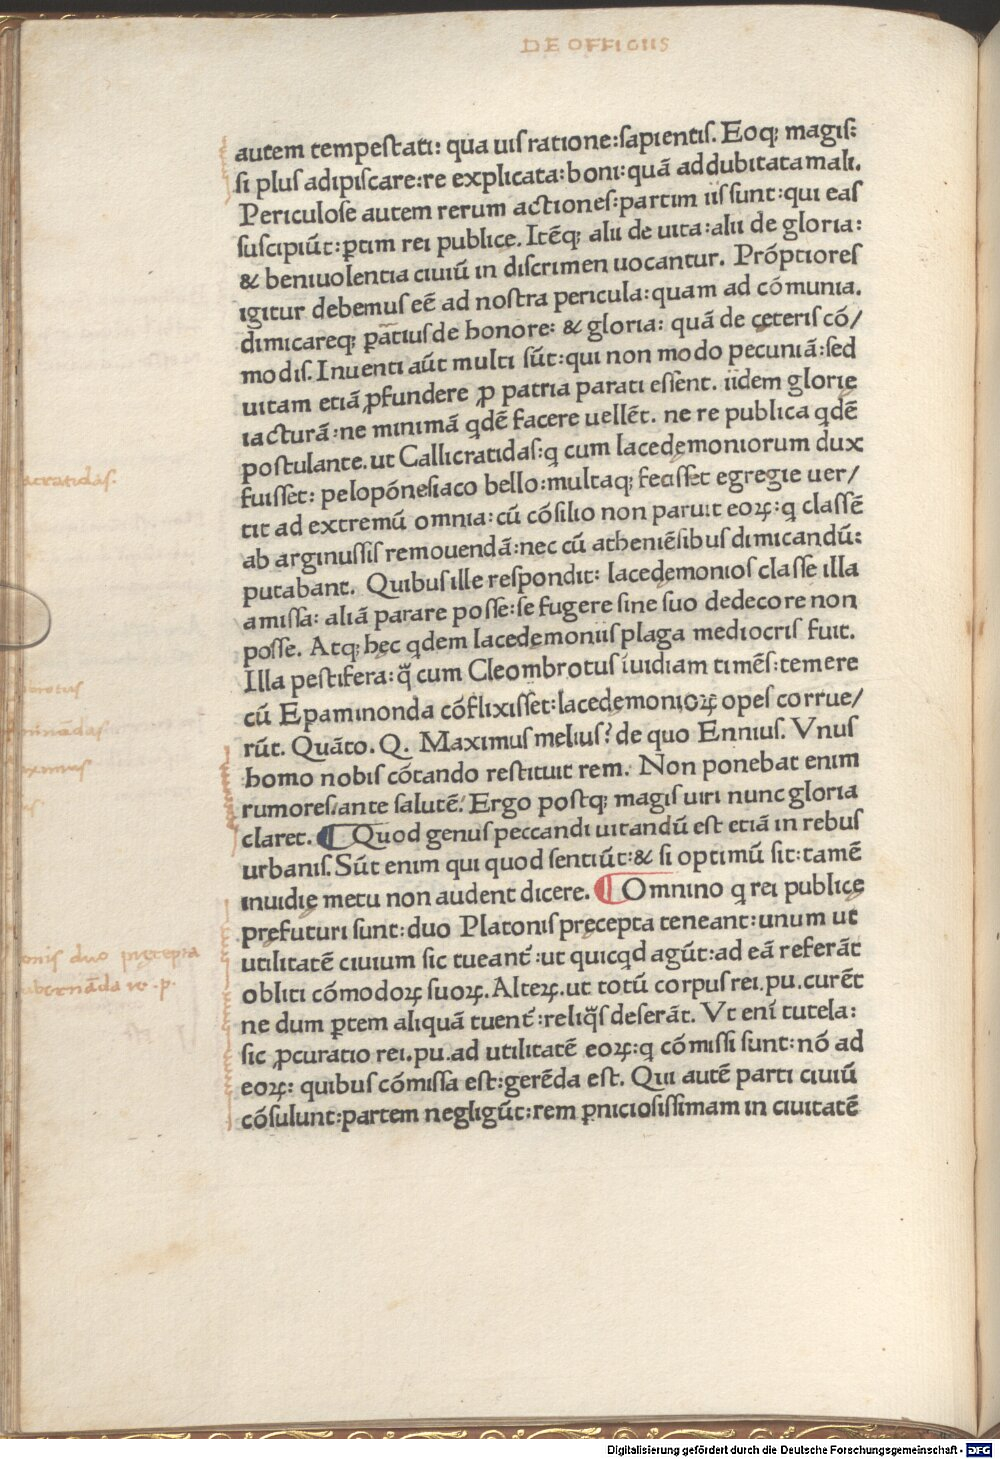 DE OFFICIIS
autem tempeſtati: qua uiſ ratione:ſapientiſ. Eoq; magiſ:
ſi pluſ adipiſcare:re explicata:boni:quã addubitata mali.
Periculoſe autem rerum actioneſ:partim iiſ ſunt:qui eaſ
ſuſcipiũt:ꝑtim rei publicę. Itẽq; alii de uita:alii de gloria:
& beniuolentia ciuiũ in diſcrimen uocantur. Prõptioreſ
igitur debemuſ eẽ ad noſtra pericula:quam ad cõmunia.
dimicareq; pãtiuſ de honore: & gloria: quã de cęteriſ cõ/
modiſ. Inuenti aũt multi ſũt:qui non modo pecuniã:ſed
uitam etiã ꝓfundere ꝓ patria parati eſſent. iidem glorię
iacturã:ne minimã qdẽ facere uellẽt. ne re publica qdẽ
poſtulante. ut Callicratidaſ:q cum lacedęmoniorum dux
fuiſſet: pelopõneſiaco bello:multaq; feciſſet egregie uer/
tit ad extremũ omnia:cũ cõſilio non paruit eoꝝ:q claſſẽ
ab arginuſſiſ remouendã:nec cũ atheniẽſibuſ dimicandũ:
putabant. Quibuſ ille reſpondit: lacedęmonioſ claſſe illa
amiſſa: aliã parare poſſe:ſe fugere ſine ſuo dedecore non
poſſe. Atq; hęc qdem lacedęmoniiſ plaga mediocriſ fuit.
Illa peſtifera:q̃ cum Cleombrotuſ ĩuidiam timẽſ:temere
cũ Epaminonda cõflixiſſet:lacedęmonioꝝ opeſ corrue/
rũt. Quãto. Q. Maximuſ meliuſ? de quo Enniuſ. Vnuſ
homo nobiſ cõtando reſtituit rem. Non ponebat enim
rumoreſ/ante ſalutẽ/ Ergo poſtq; magiſ uiri nunc gloria
claret. ¶ Quod genuſ peccandi uitandũ eſt etiã in rebuſ
urbaniſ. Sũt enim qui quod ſentiũt:& ſi optimũ ſit:tamẽ
inuidię metu non audent dicere. ¶ Omnino q rei publicę
pręfuturi ſunt:duo Platoniſ pręcepta teneant:unum ut
utilitatẽ ciuium ſic tueant̃:ut quicqd agũt:ad eã referãt
obliti cõmodoꝝ ſuoꝝ. Alteꝝ. ut totũ corpuſ rei. pu. curẽt
ne dum ꝑtem aliquã tuent̃:reliq̃ſ deſerãt. Vt enĩ tutela:
ſic ꝓcuratio rei. pu. ad utilitatẽ eoꝝ:q cõmiſſi ſunt:nõ ad
eoꝝ: quibuſ cõmiſſa eſt:gerẽda eſt. Qui autẽ parti ciuiũ
cõſulunt:partem negligũt:rem ꝑnicioſiſſimam in ciuitatẽ
acratidas.
onis duo pręcepta
Digitalisierung gefördert durch die Deutsche Forschungsgemeinschaft - DFG